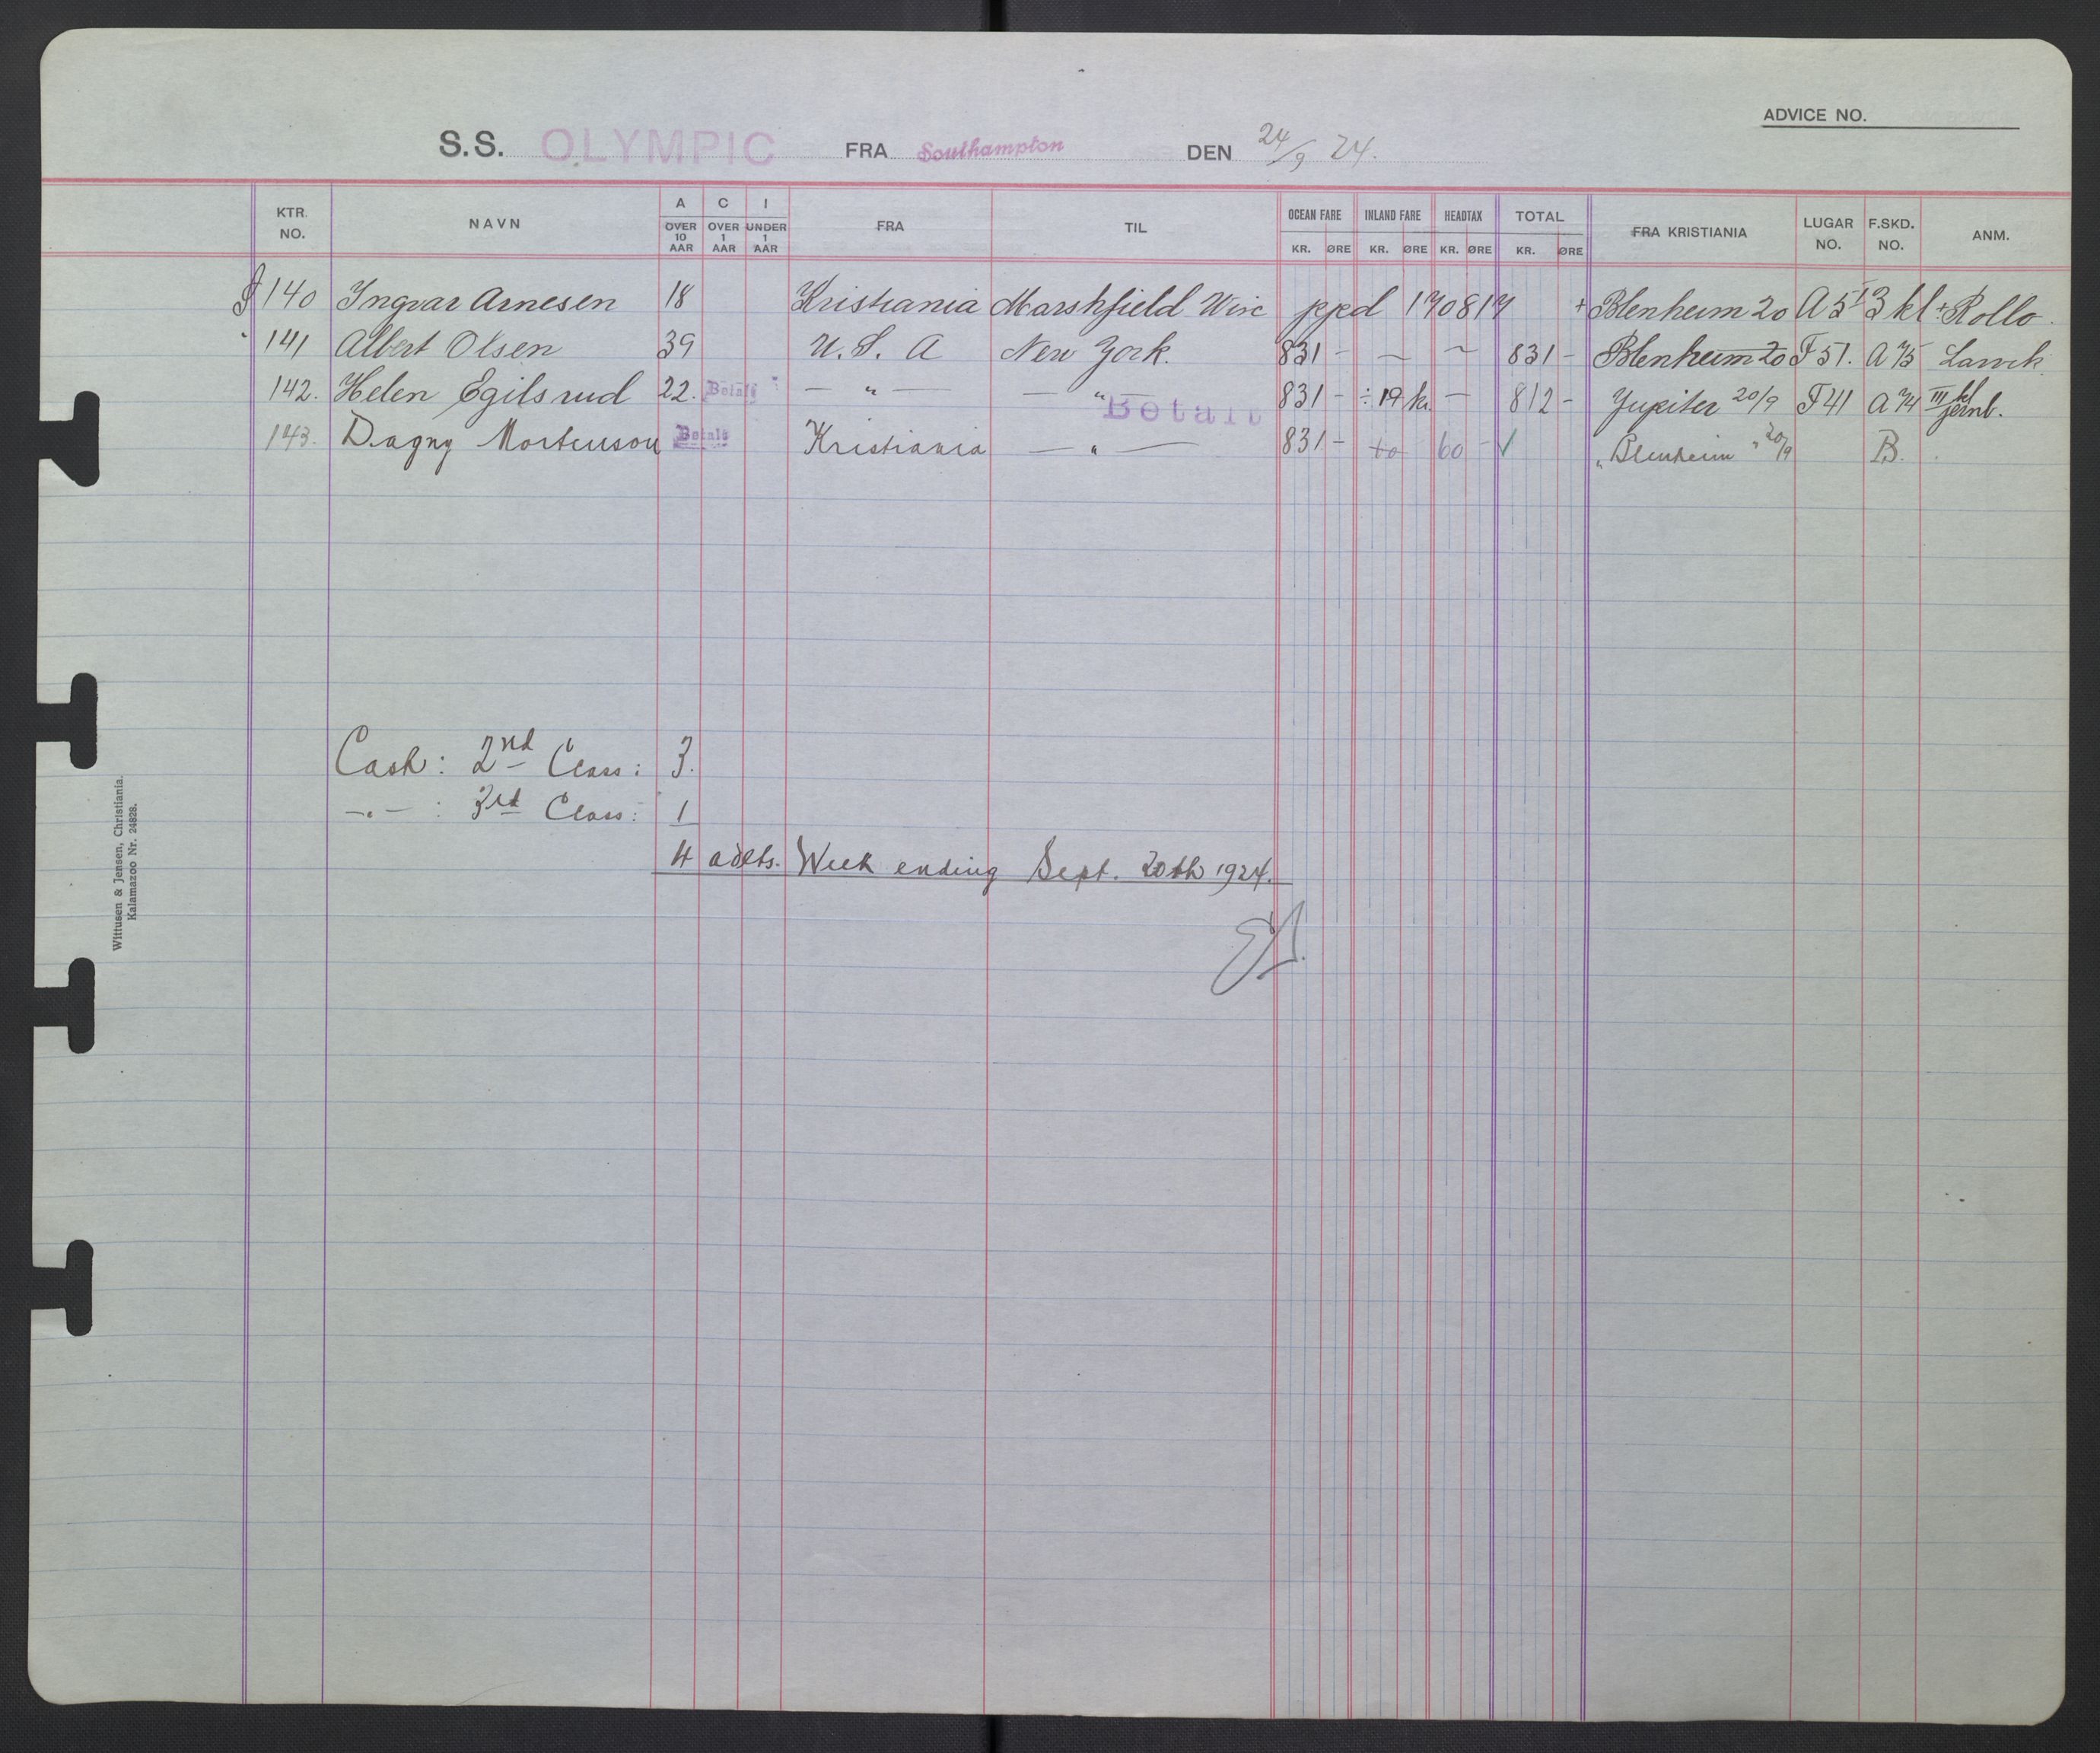 ADVICE NO.
S.S. OLYMPIC FRA Southampton DEN 24/9 24.
KTR. NO. NAVN A OVER 10 AAR C OVER 1 AAR I UNDER 1 AAR FRA TIL OCEAN FARE KR. ØRE INLAND FARE KR. ØRE HEADTAX KR. ØRE TOTAL KR. ØRE FRA KRISTIANIA LUGAR NO. F.SKD. NO. ANM.
140 Ingvar Arnesen 18 Kristiania Marshfield Wisc ppd 170817 + Blenheim 20 A 5 3 kl + Rollo
141 Albert Olsen 39 U.S.A New York. 831 - — — 831 - Blenheim 20 F 51. A 75 Larvik
142. Helen Egilsrud 22. Betalt — " — — " — Betalt 831 - ÷ 19 kr. — 812 - Jupiter 20/9 F 41 A 74 III kl jernb.
143. Dagny Mortenson Betalt Kristiania — " — 831 - 10 60 - ✓ "Blenheim" 20/9 B.
Cash: 2nd Class: 3.
— " — : 3rd Class: 1
4 adlts. Week ending Sept. 20th 1924.
Wittusen & Jensen, Christiania.
Kalamazoo Nr. 24828.